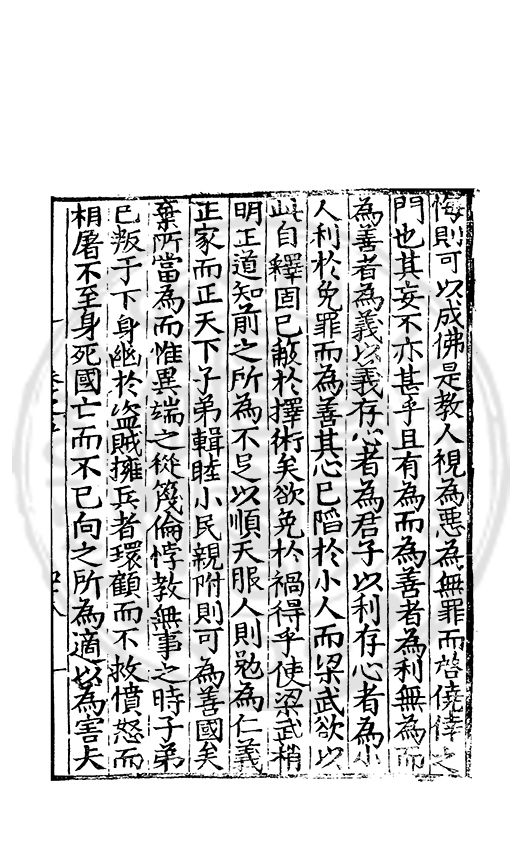 悔則可以成佛是教人視為悪為無罪而啓僥倖之
門也其妄不亦甚乎且有為而為善者為利無為而
為善者為義以義存心者為君子以利存心者為小
人利於免罪而為善其心已陷於小人而梁武欲以
此自釋固已蔽於擇術矣欲免於禍得乎使梁武稍
明正道知前之所為不足以順天服人則勉為仁義
正家而正天下子弟輯睦小民親附則可為善國矣
棄所當為而惟異端之從篾倫悖教無事之時子弟
已叛于下身幽於盗賊擁兵者環顧而不救憤怒而
相屠不至身死國亡而不已向之所為適以為害大